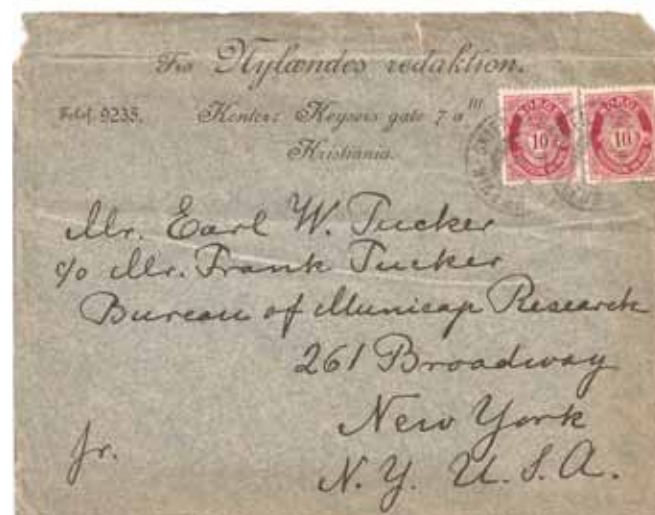 Fra Nylændes redaktion.
Telef. 9235.
Kontor: Keysers gate 7 a III
Kristiania.
NORGE
10
NORGE
10
Mr. Earl W. Tucker
c/o Mr. Frank Tucker
Bureau of Municap Research
261 Broadway
New York
N. Y. U. S. A.
fr.